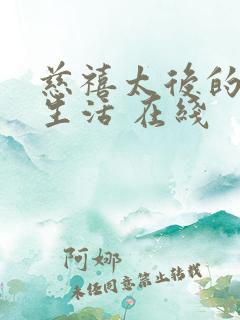 慈禧太後的
生活 在綫
阿娜
未经同意禁止转载